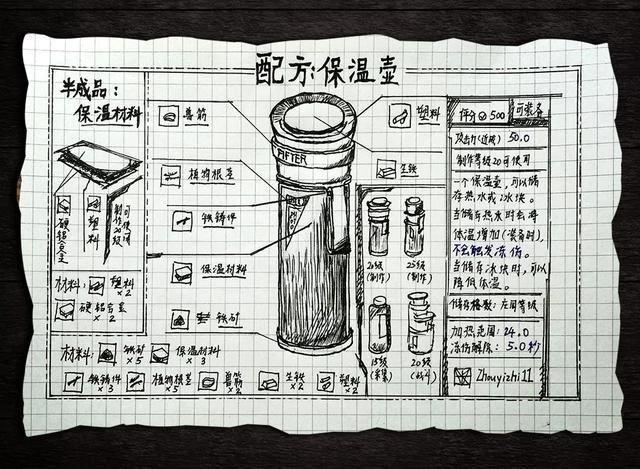 配方:保温壶
半成品:
保温材料
硬铝合金
塑料
材料:
塑料
×2
硬铝合金
×2
兽筋
植物根茎
铁铸件
保温材料
铁矿
塑料
生铁
AFTER
20级
(制作)
25级
(制作)
15级
20级
评分 500
可装备
50.0
制作等级20可使用
一个保温壶,可以储
存热水或冰块。
当储存热水时会将
体温增加(装备时),
不会触发冻伤。
当储存冰块时,可以
降低体温。
加热范围:24.0
冻伤解除:5.0秒
Zhouyizhi11
材料:
铁矿
×5
保温材料
×3
铁铸件
×3
植物根茎
×5
兽筋
×2
生铁
×2
塑料
×2